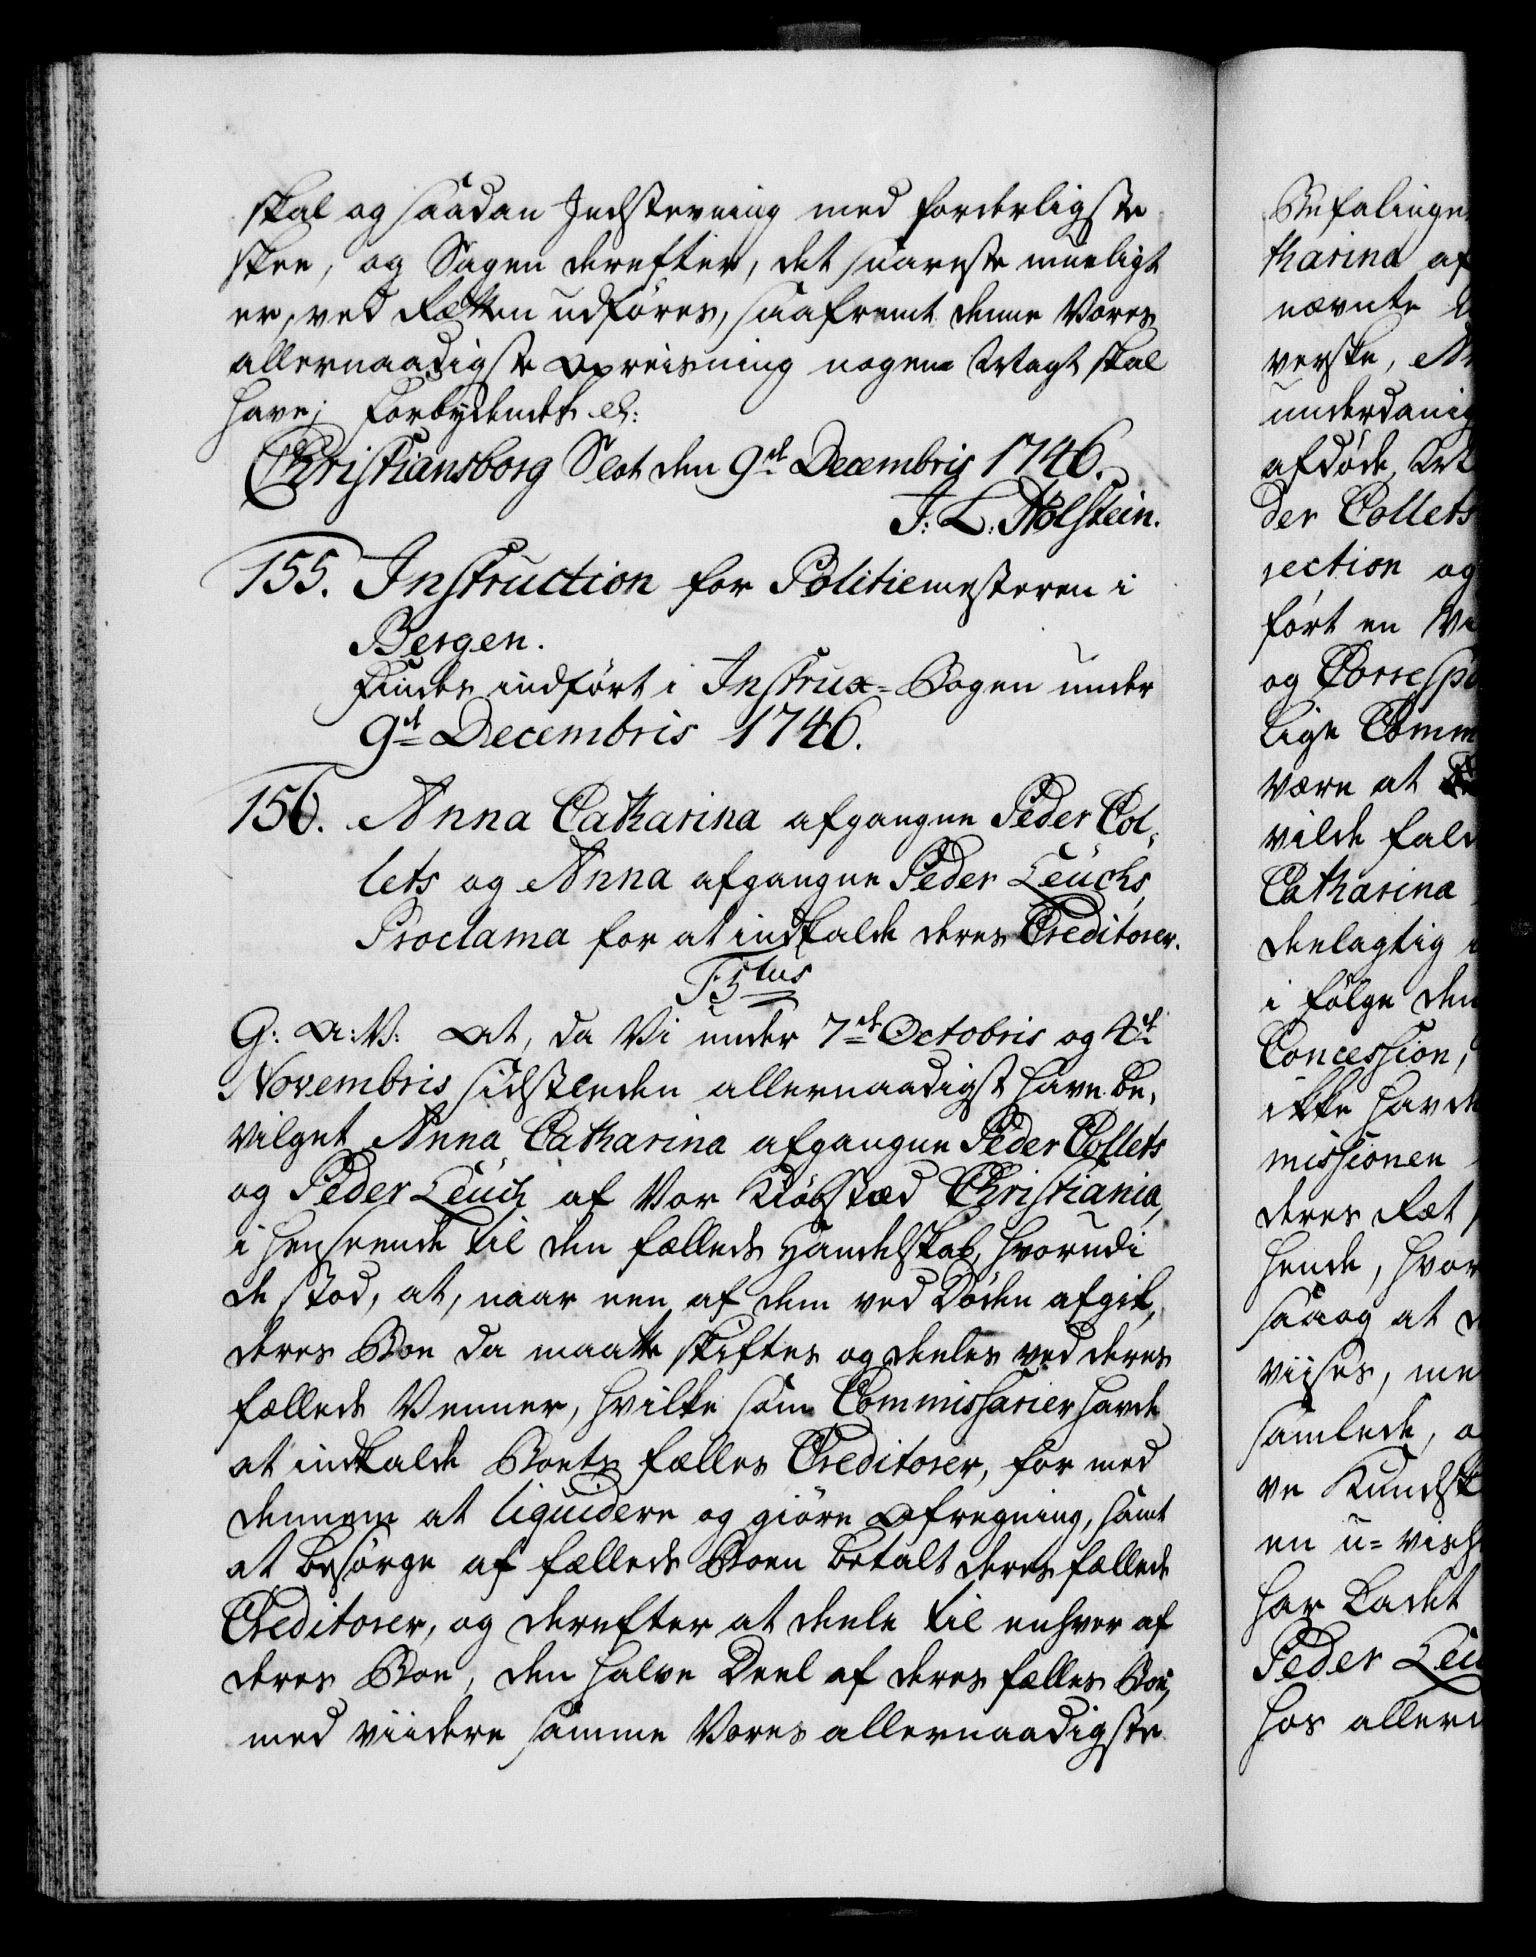 skal og saadan Indstevning med forderligste
skee, og Sagen derefter, det snareste mueligt
er, ved Retten udføres, saafremt denne Vores
allernaadigste Opreisning nogen Magt skal
have; Forbydendes &:
Christiansborg Slot den 9de Decembris 1746.
J: L: Holstein.
155. Instruction for Politiemesteren i
Bergen.
Findes indført i Instrux-Bogen under
9de Decembris 1746.
156. Anna Catharina afgangne Peder Col-
lets og Anna afgangne Peder Leuchs
Proclama for at indkalde deres Creditorer.
F5tus
G: A: V: At, da Vi under 7de Octobris og 4de
Novembris sidstleden allernaadigst have be-
vilget Anna Catharina afgangne Peder Collets
og Peder Leuch af Vor Kiøbstæd Christiania,
i henseende til den fælleds Handelskab, hvorudi
de stod, at, naar een af dem ved Døden afgik,
deres Boe da maatte skiftes og deeles ved deres
fælleds Venner, hvilke som Commissarier havde
at indkalde Boets fælles Creditorer, for med
dennem at liquidere og giøre Afregning, samt
at besørge af fælleds Boen betalt deres fælleds
Creditorer, og derefter at deele til enhver af
deres Boe, den halve Deel af deres fælles Boe,
med viidere samme Vores allernaadigste
Befalinge
tharina af
nævnte
verske, 
underdanig
afdøde
der Collets
section og
ført en
og Correspo
lige Comm
være at
vilde fald
Catharina
deelagtig
i følge den
Concession,
ikke havde
missionen
deres Ret
hende, hvor
saaog at
viises, me
samlede,
ve Kundsk
en u-viss
har ladet
Peder Leu
hos aller